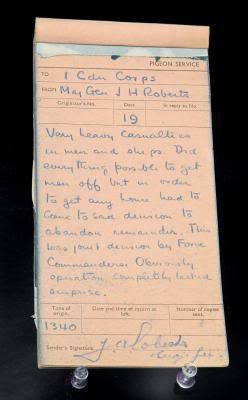 PIGEON SERVICE
TO 1 Cdn Corps
FROM Maj Gen J H Roberts
Originator's No. Date In reply to No.
19
Very heavy casualties
in men and ships. Did
everything possible to get
men off but in order
to get any home had to
come to sad decision to
abandon remainder. This
was joint decision by Force
Commanders. Obviously
operation completely lacked
surprise.
Time of origin. Date and time of receipt at loft. Number of copies sent.
1340
Sender's Signature